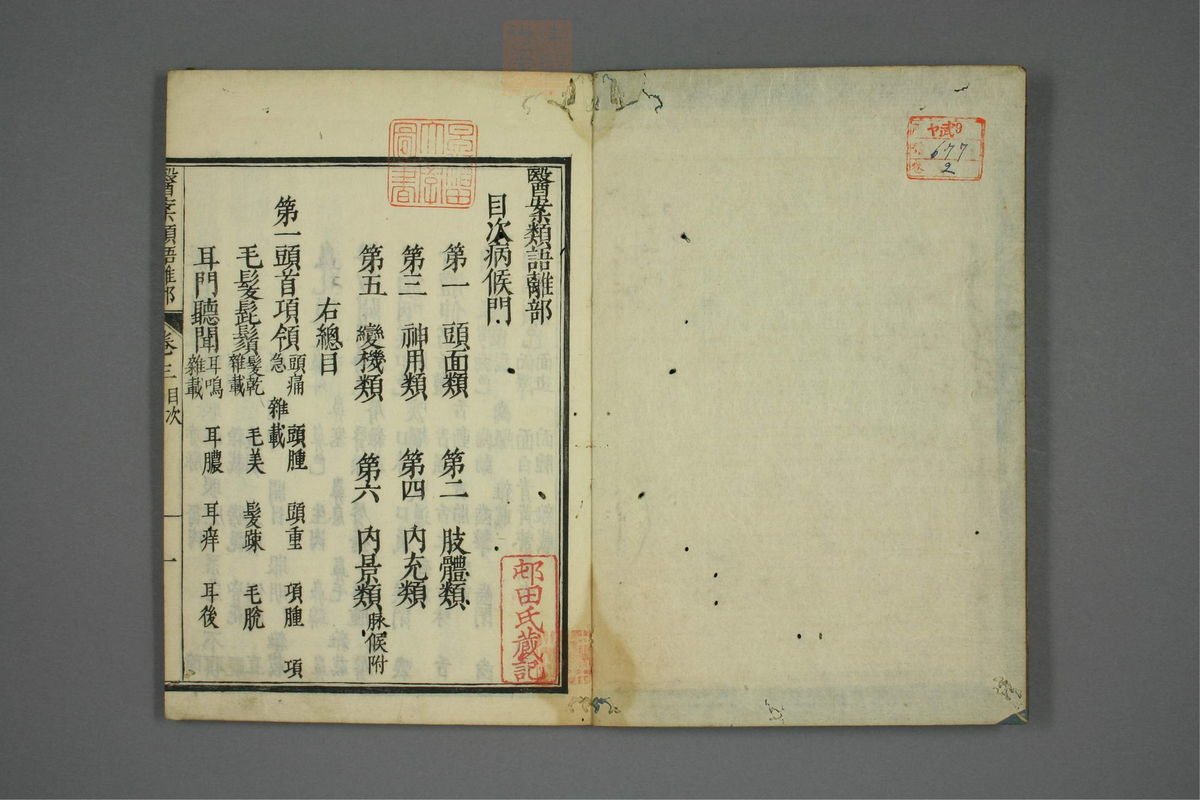 ヤ武9
677
2
醫案類語離部
目次病候門
第一 頭面類 第二 肢體類
第三 神用類 第四 內充類
第五 變機類 第六 內景類 脉候附
右總目
第一頭首項領 頭痛 頭腫 頭重 項腫 項急 雜載
毛髮髭鬚 髮乾 毛美 髮踈 毛脫 雜載
耳門聽聞 耳鳴 耳膿 耳痒 耳後 雜載
醫案類語離部 卷三 目次 一
邨田氏蔵記
圖書